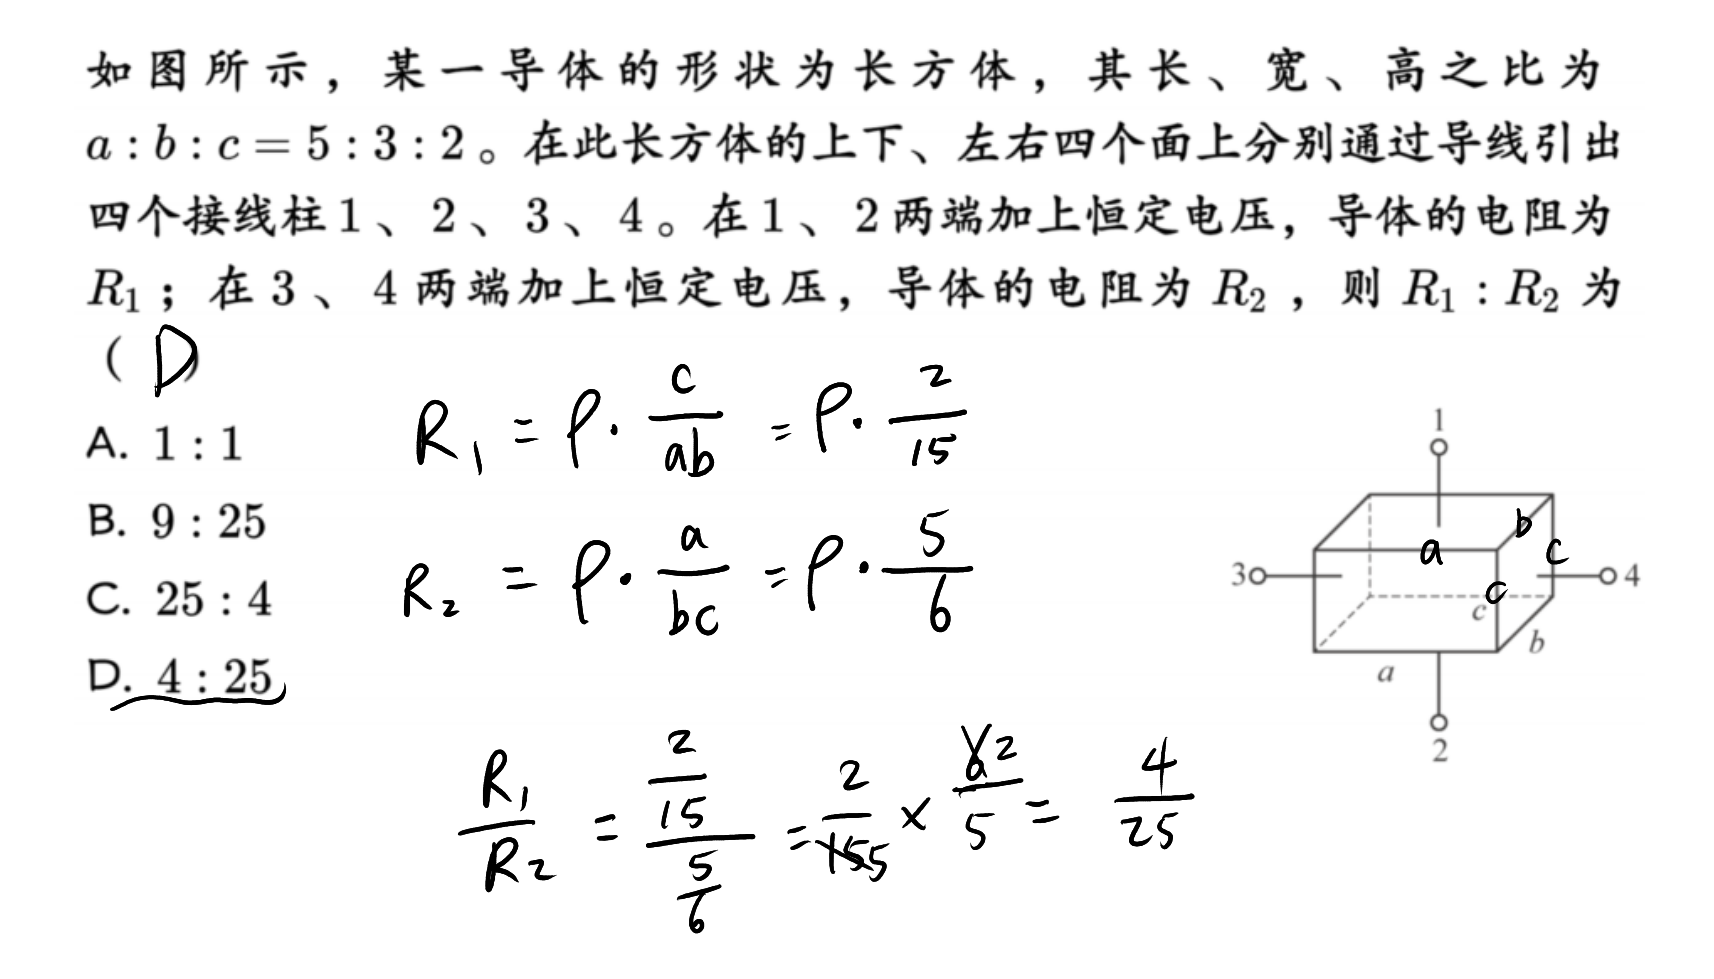 如图所示，某一导体的形状为长方体，其长、宽、高之比为
a : b : c = 5 : 3 : 2 。在此长方体的上下、左右四个面上分别通过导线引出
四个接线柱 1 、 2 、 3 、 4 。在 1 、 2 两端加上恒定电压，导体的电阻为
R₁ ；在 3 、 4 两端加上恒定电压，导体的电阻为 R₂ ，则 R₁ : R₂ 为
（ D ）
A. 1 : 1
B. 9 : 25
C. 25 : 4
D. 4 : 25
R₁ = ρ · c/ab = ρ · 2/15
R₂ = ρ · a/bc = ρ · 5/6
R₁/R₂ = (2/15)/(5/6) = 2/15 5 × 6 2/5 = 4/25
1
b
a
c
3
4
c
c
b
a
2